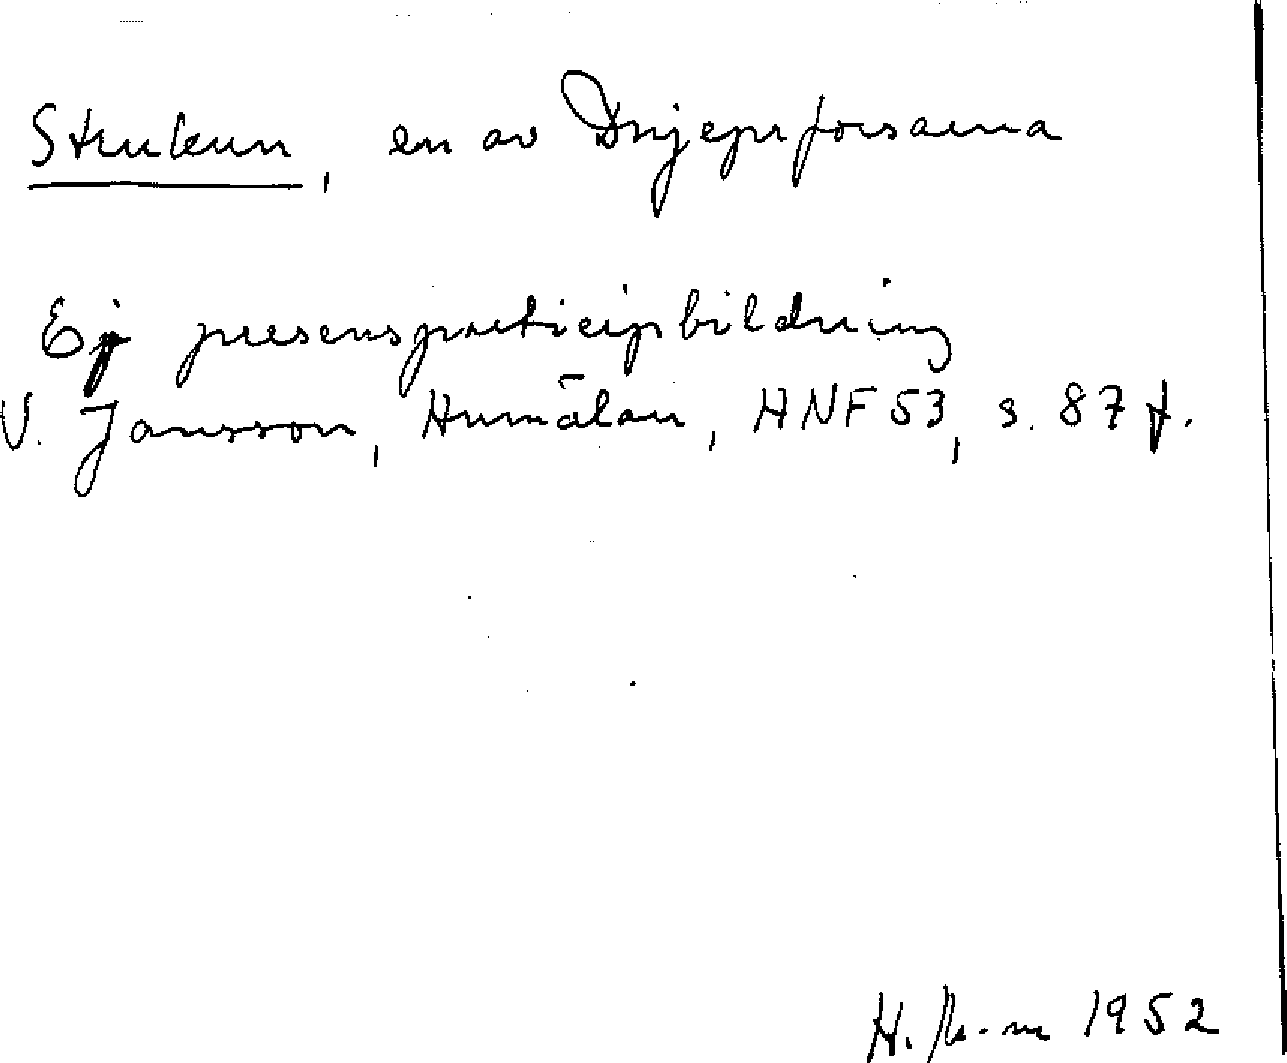 Strukun, en av Dnjeprforsarna
Ej presensparticipbildning
V. Jansson, Humālan, HNF 53, s. 87 f.
H. 1952